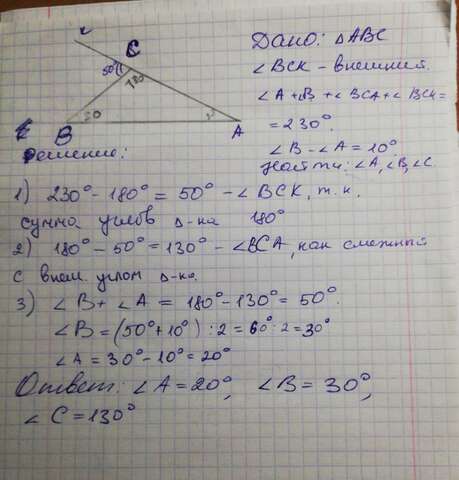 C
50°
130
30
B
A
Дано: ΔABC
∠BCK – внешний.
∠A + ∠B + ∠BCA + ∠BCK =
= 230°.
∠B - ∠A = 10°.
Найти: ∠A, ∠B, ∠C.
Решение:
1) 230° - 180° = 50° - ∠BCK, т. к.
сумма углов Δ-ка 180°
2) 180° - 50° = 130° - ∠BCA, как смежный
с внеш. углом Δ-ка.
3) ∠B + ∠A = 180° - 130° = 50°.
∠B = (50° + 10°) : 2 = 60° : 2 = 30°
∠A = 30° - 10° = 20°
Ответ: ∠A = 20°, ∠B = 30°,
∠C = 130°